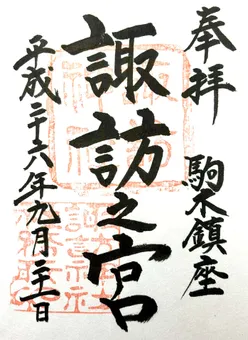 奉拝
駒木鎮座
諏訪之宮
平成二十六年九月二十一日